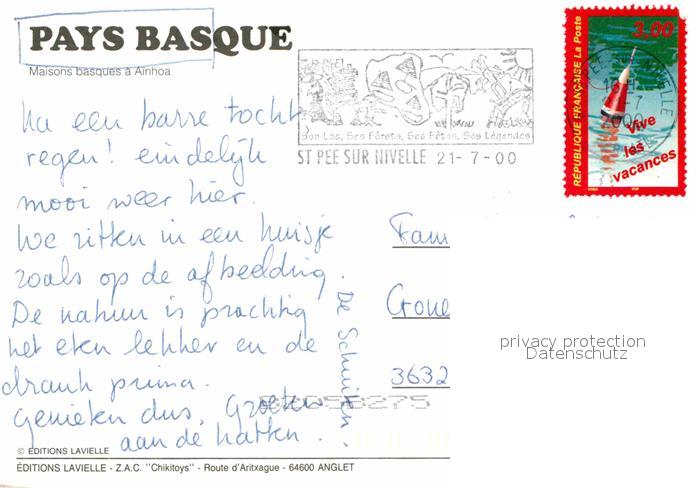 PAYS BASQUE
Maisons basques à Aïnhoa
Na een barre tocht
regen! eindelijk
mooi weer hier.
We zitten in een huisje
zoals op de afbeelding.
De natuur is prachtig
het eten lekker en de
drank prima.
Genieten dus. Groeten
aan de hatten.
De Schuiten.
Son Lac, Ses Fôrets, Ses Fêtes, Ses Légendes
ST PEE SUR NIVELLE 21-7-00
3,00
RÉPUBLIQUE FRANÇAISE La Poste
Vive
les
vacances
Fam
3632
privacy protection
Datenschutz
© EDITIONS LAVIELLE
EDITIONS LAVIELLE - Z.A.C. "Chikitoys" - Route d'Aritxague - 64600 ANGLET